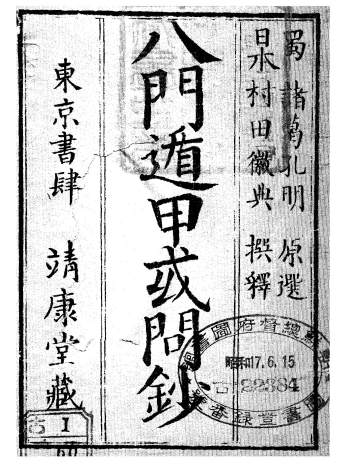 蜀 諸葛孔明 原選
日本 村田徽典 撰釋
八門遁甲或問鈔
東京書肆 靖康堂藏
昭和17.6.15
古 22384
古 1
60